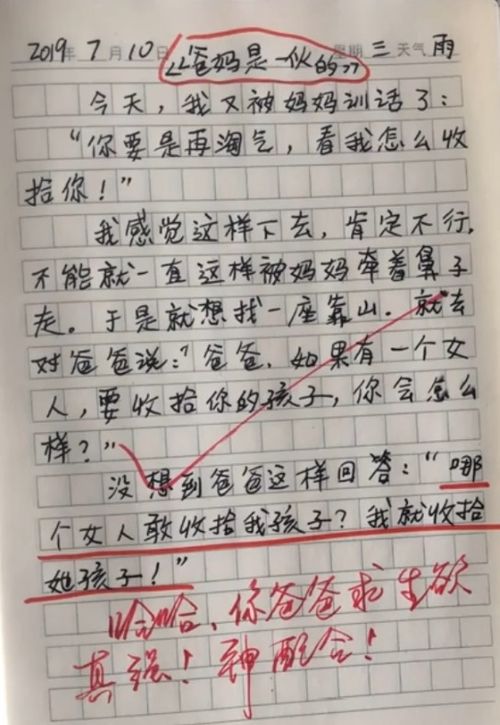 2019年7月10日 星期三天气雨
《爸妈是一伙的》
今天，我又被妈妈训话了：
“你要是再淘气，看我怎么收
拾你！”
我感觉这样下去，肯定不行，
不能就一直这样被妈妈牵着鼻子
走。于是就想找一座靠山．就去
对爸爸说：“爸爸．如果有一个女
人，要收拾你的孩子，你会怎么
样？”
没想到爸爸这样回答：“哪
个女人敢收拾我孩子？我就收拾
她孩子！”
哈哈、你爸爸求生欲
真强！神配合！